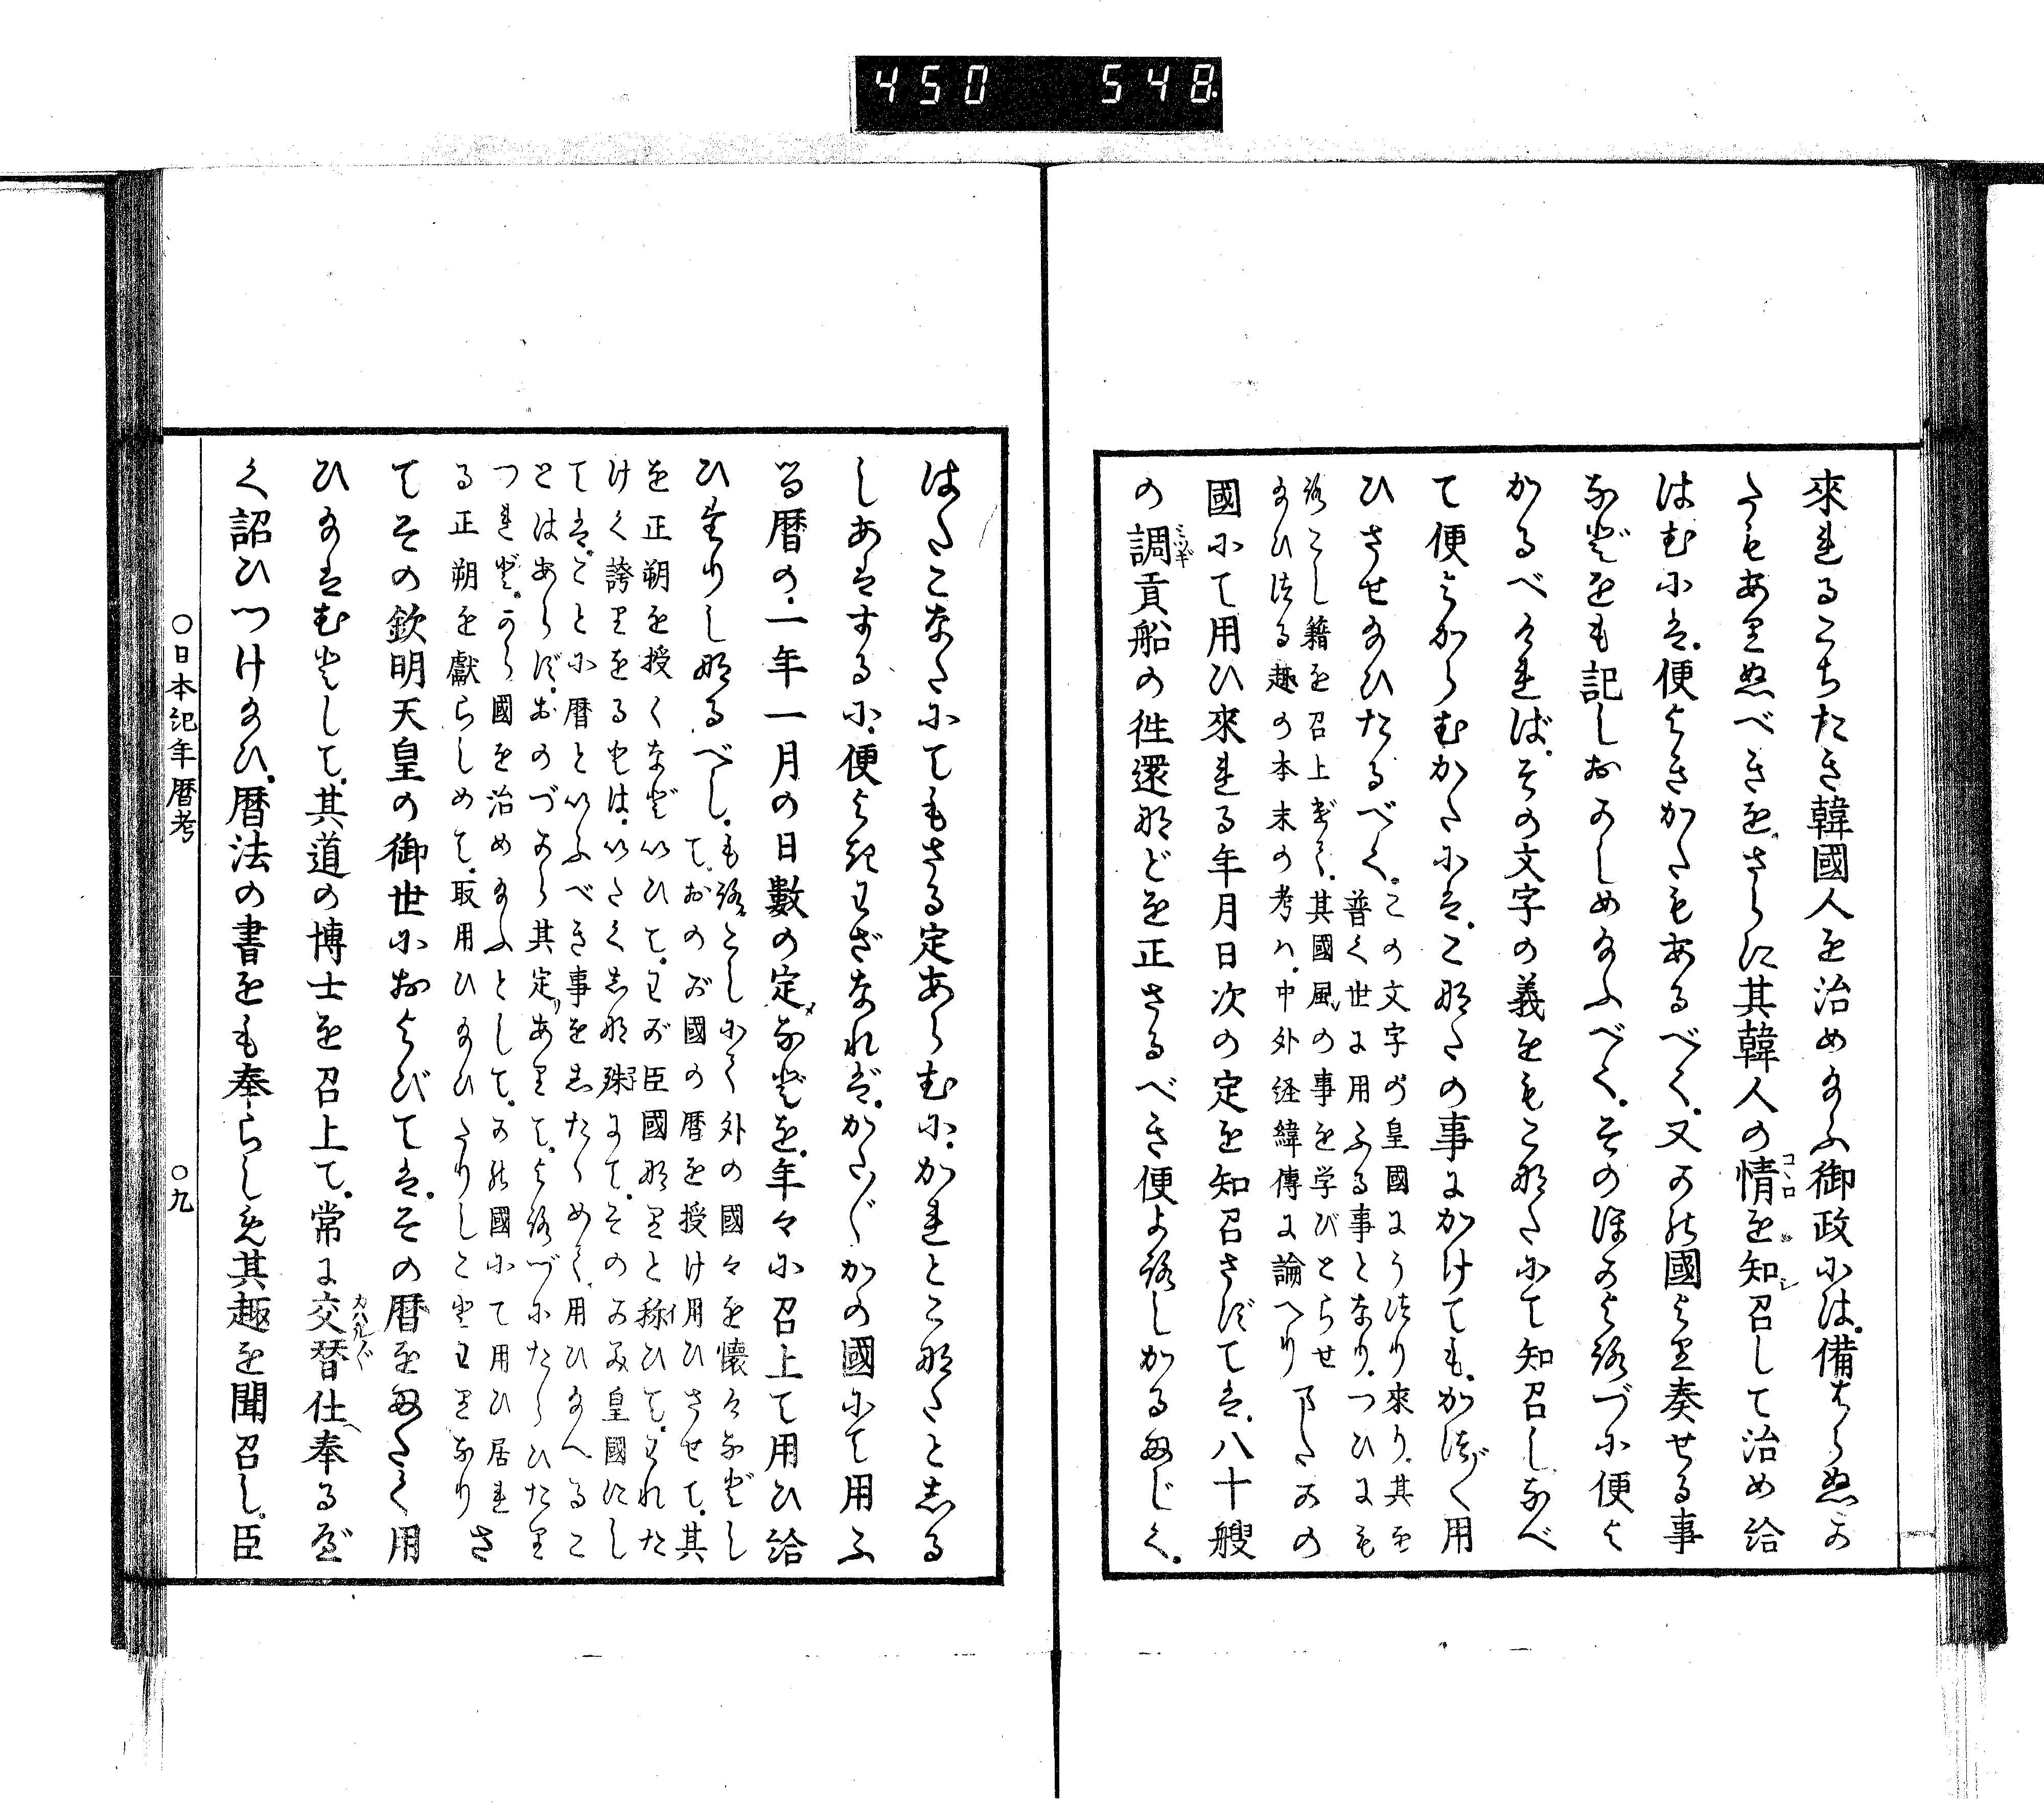 450 548
來れるこちたき韓國人を治め給ふ御政には。備はらぬか
たもありぬべきを。さらに其韓人の情を知召して治め給
コヽロ シ
はむには。便よきかたもあるべく。又かの國より奏せる事
などをも記しおかしめ給ふべく。そのほかよろづに便よ
かるべければ。その文字の義をもこなたにて知召しなべ
て便よからむかたには。こなたの事にかけても。かつ〴〵用
ひさせ給ひたるべく。
この文字の皇國にうつり來り。其を
普く世に用ふる事となり。つひにも
ろこし籍を召上げて。其國風の事を学びとらせ
給ひつる趣の本末の考ハ。中外経緯傳に論へり
またかの
國にて用ひ來れる年月日次の定を知召さずては。八十艘
の調貢船の往還などを正さるべき便よろしかるまじく。
ミツギ
はたこなたにてもさる定あらむに。かれとこなたと志る
しあはするに。便よきわざなれば。かたがたかの國にて用ふ
る暦の。一年一月の日數の定などを。年々に召上て用ひ給
ひたりしなるべし。
もろこしにて外の國々を懐けなどし
て。おのが國の暦を授け用ひさせて。其
を正朔を授くなどいひて。わが臣國なりと称ひて。それた
けく誇りをるをは。いたく志な殊にて。そのかみ皇國にし
ては。ことに暦といふべき事を志たゝめて。用ひ給へるこ
とはあらず。おのづから其定ありて。よろづにたらひたり
つれど。から國を治め給ふとして。かの國にて用ひ居れ
る正朔を獻らしめて。取用ひ給ひたりしことわりなり
さ
てその欽明天皇の御世におよびては。その暦をまたく用
ひ給はむとして。其道の博士を召上て。常に交替仕奉るべ
カハルガ
く詔ひつけ給ひ。暦法の書をも奉らしめ其趣を聞召し。臣
〇日本紀年暦考
〇九